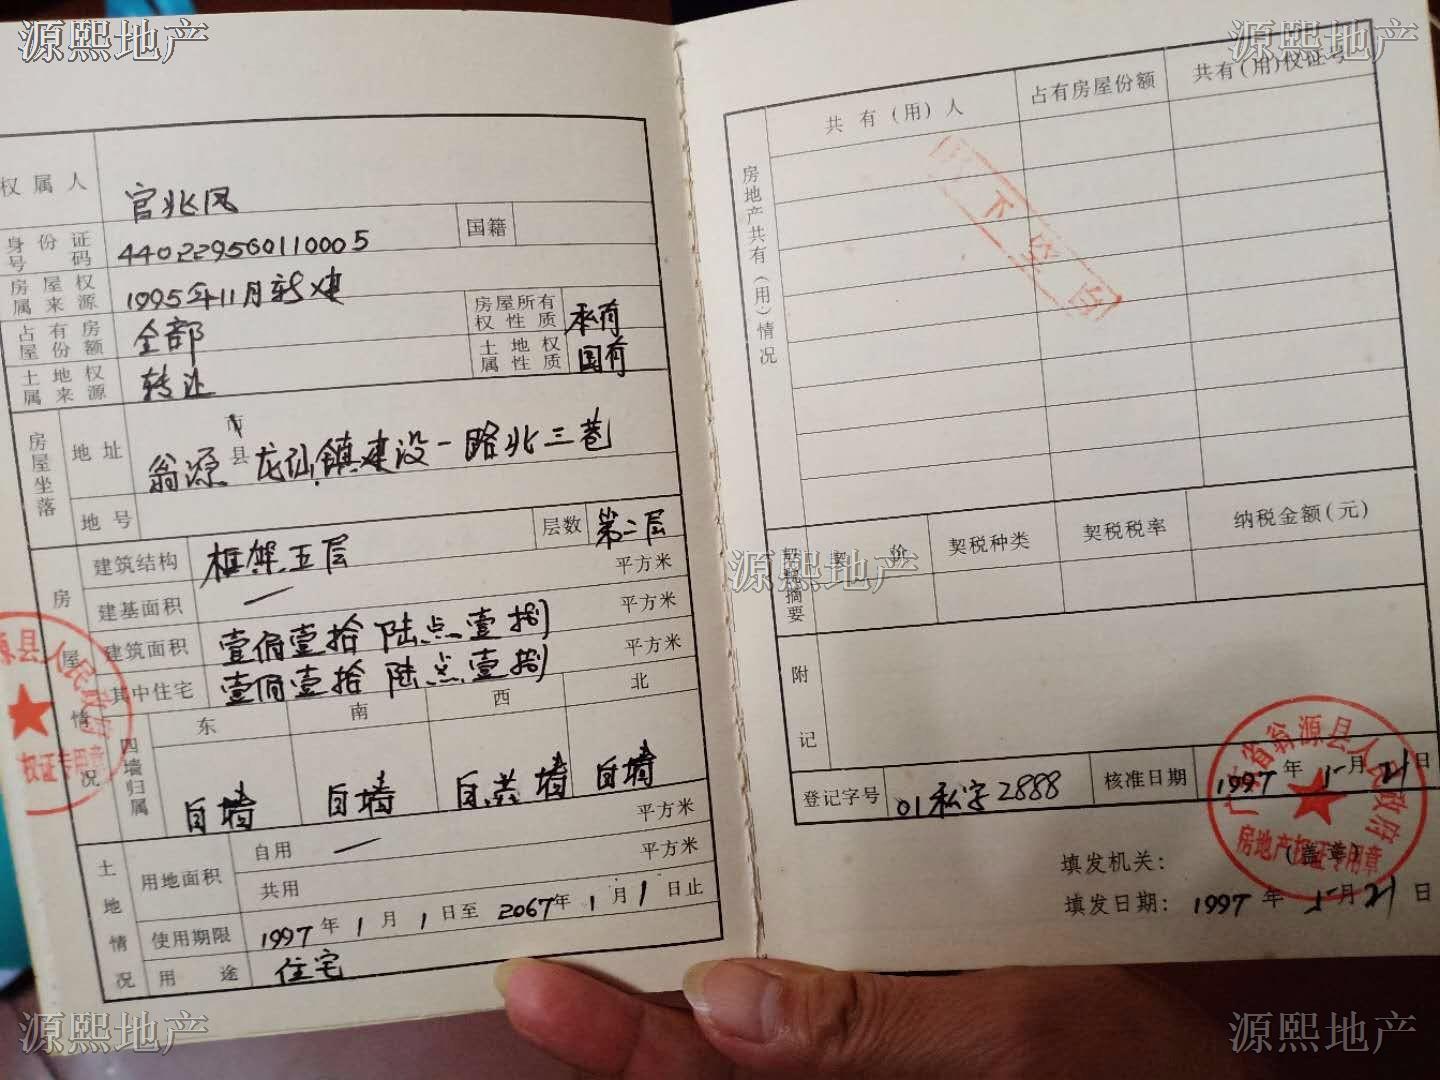 源熙地产
源熙地产
权属人 官兆凤
身份证号码 440229560110005 国籍
房屋权属来源 1995年11月新建 房屋所有权性质 私有
占有房屋份额 全部 土地权属性质 国有
土地权属来源 转让
房屋坐落 地址 翁源 市县 龙仙镇建设一路北三巷
地号
房屋情况 建筑结构 框架五层 层数 第二层
建基面积 — 平方米
建筑面积 壹佰壹拾陆点壹捌 平方米
其中住宅 壹佰壹拾陆点壹捌 平方米
四墙归属 东 南 西 北
自墙 自墙 自共墙 自墙
土地情况 用地面积 自用 — 平方米
共用 平方米
使用期限 1997年1月1日至2067年1月1日止
用途 住宅
源县人民政府
权证专用章
房地产共有(用)情况 共有(用)人 占有房屋份额 共有(用)权证号
契税摘要 契价 契税种类 契税税率 纳税金额(元)
源熙地产
附记
登记字号 01私字2888 核准日期 1997年5月21日
填发机关: (盖章)
填发日期: 1997年5月21日
广东省翁源县人民政府
房地产权证专用章
源熙地产
源熙地产